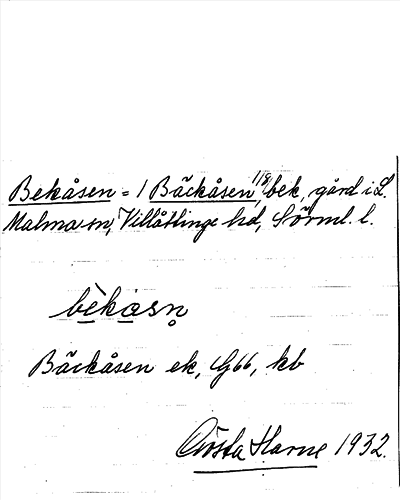 Bekåsen = 1 Bäckåsen 1/8, bek, gård i L.
Malma sn, Villåttinge hd, Sörml. l.
bèkåsn̥
Bäckåsen ek, G66, kb
Gösta Harne 1932.